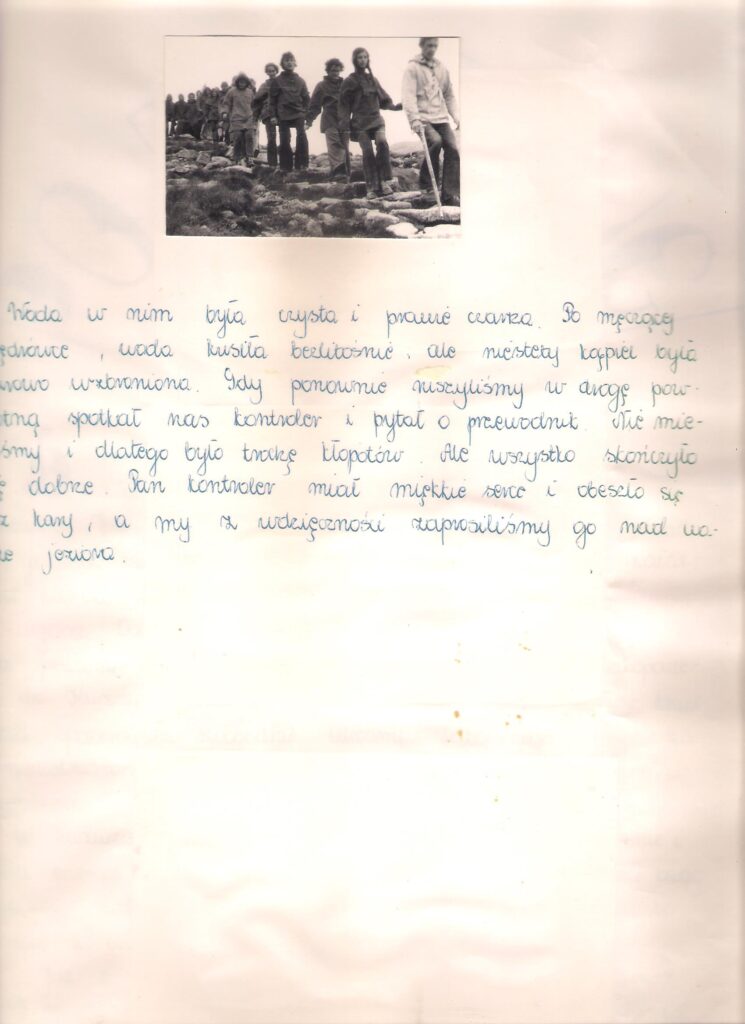 Woda w nim była czysta i prawie czarna. Po męczącej
ędrówce, woda kusiła bezlitośnie, ale niestety kąpiel była
nowo wzbroniona. Gdy ponownie ruszyliśmy w drogę pow-
tną spotkał nas kontroler i pytał o przewodnik. Nie mie-
śmy i dlatego było trochę kłopotów. Ale wszystko skończyło
ę dobrze. Pan kontroler miał miękkie serce i obeszło się
z kary, a my z wdzięczności zaprosiliśmy go nad na-
ze jeziora.